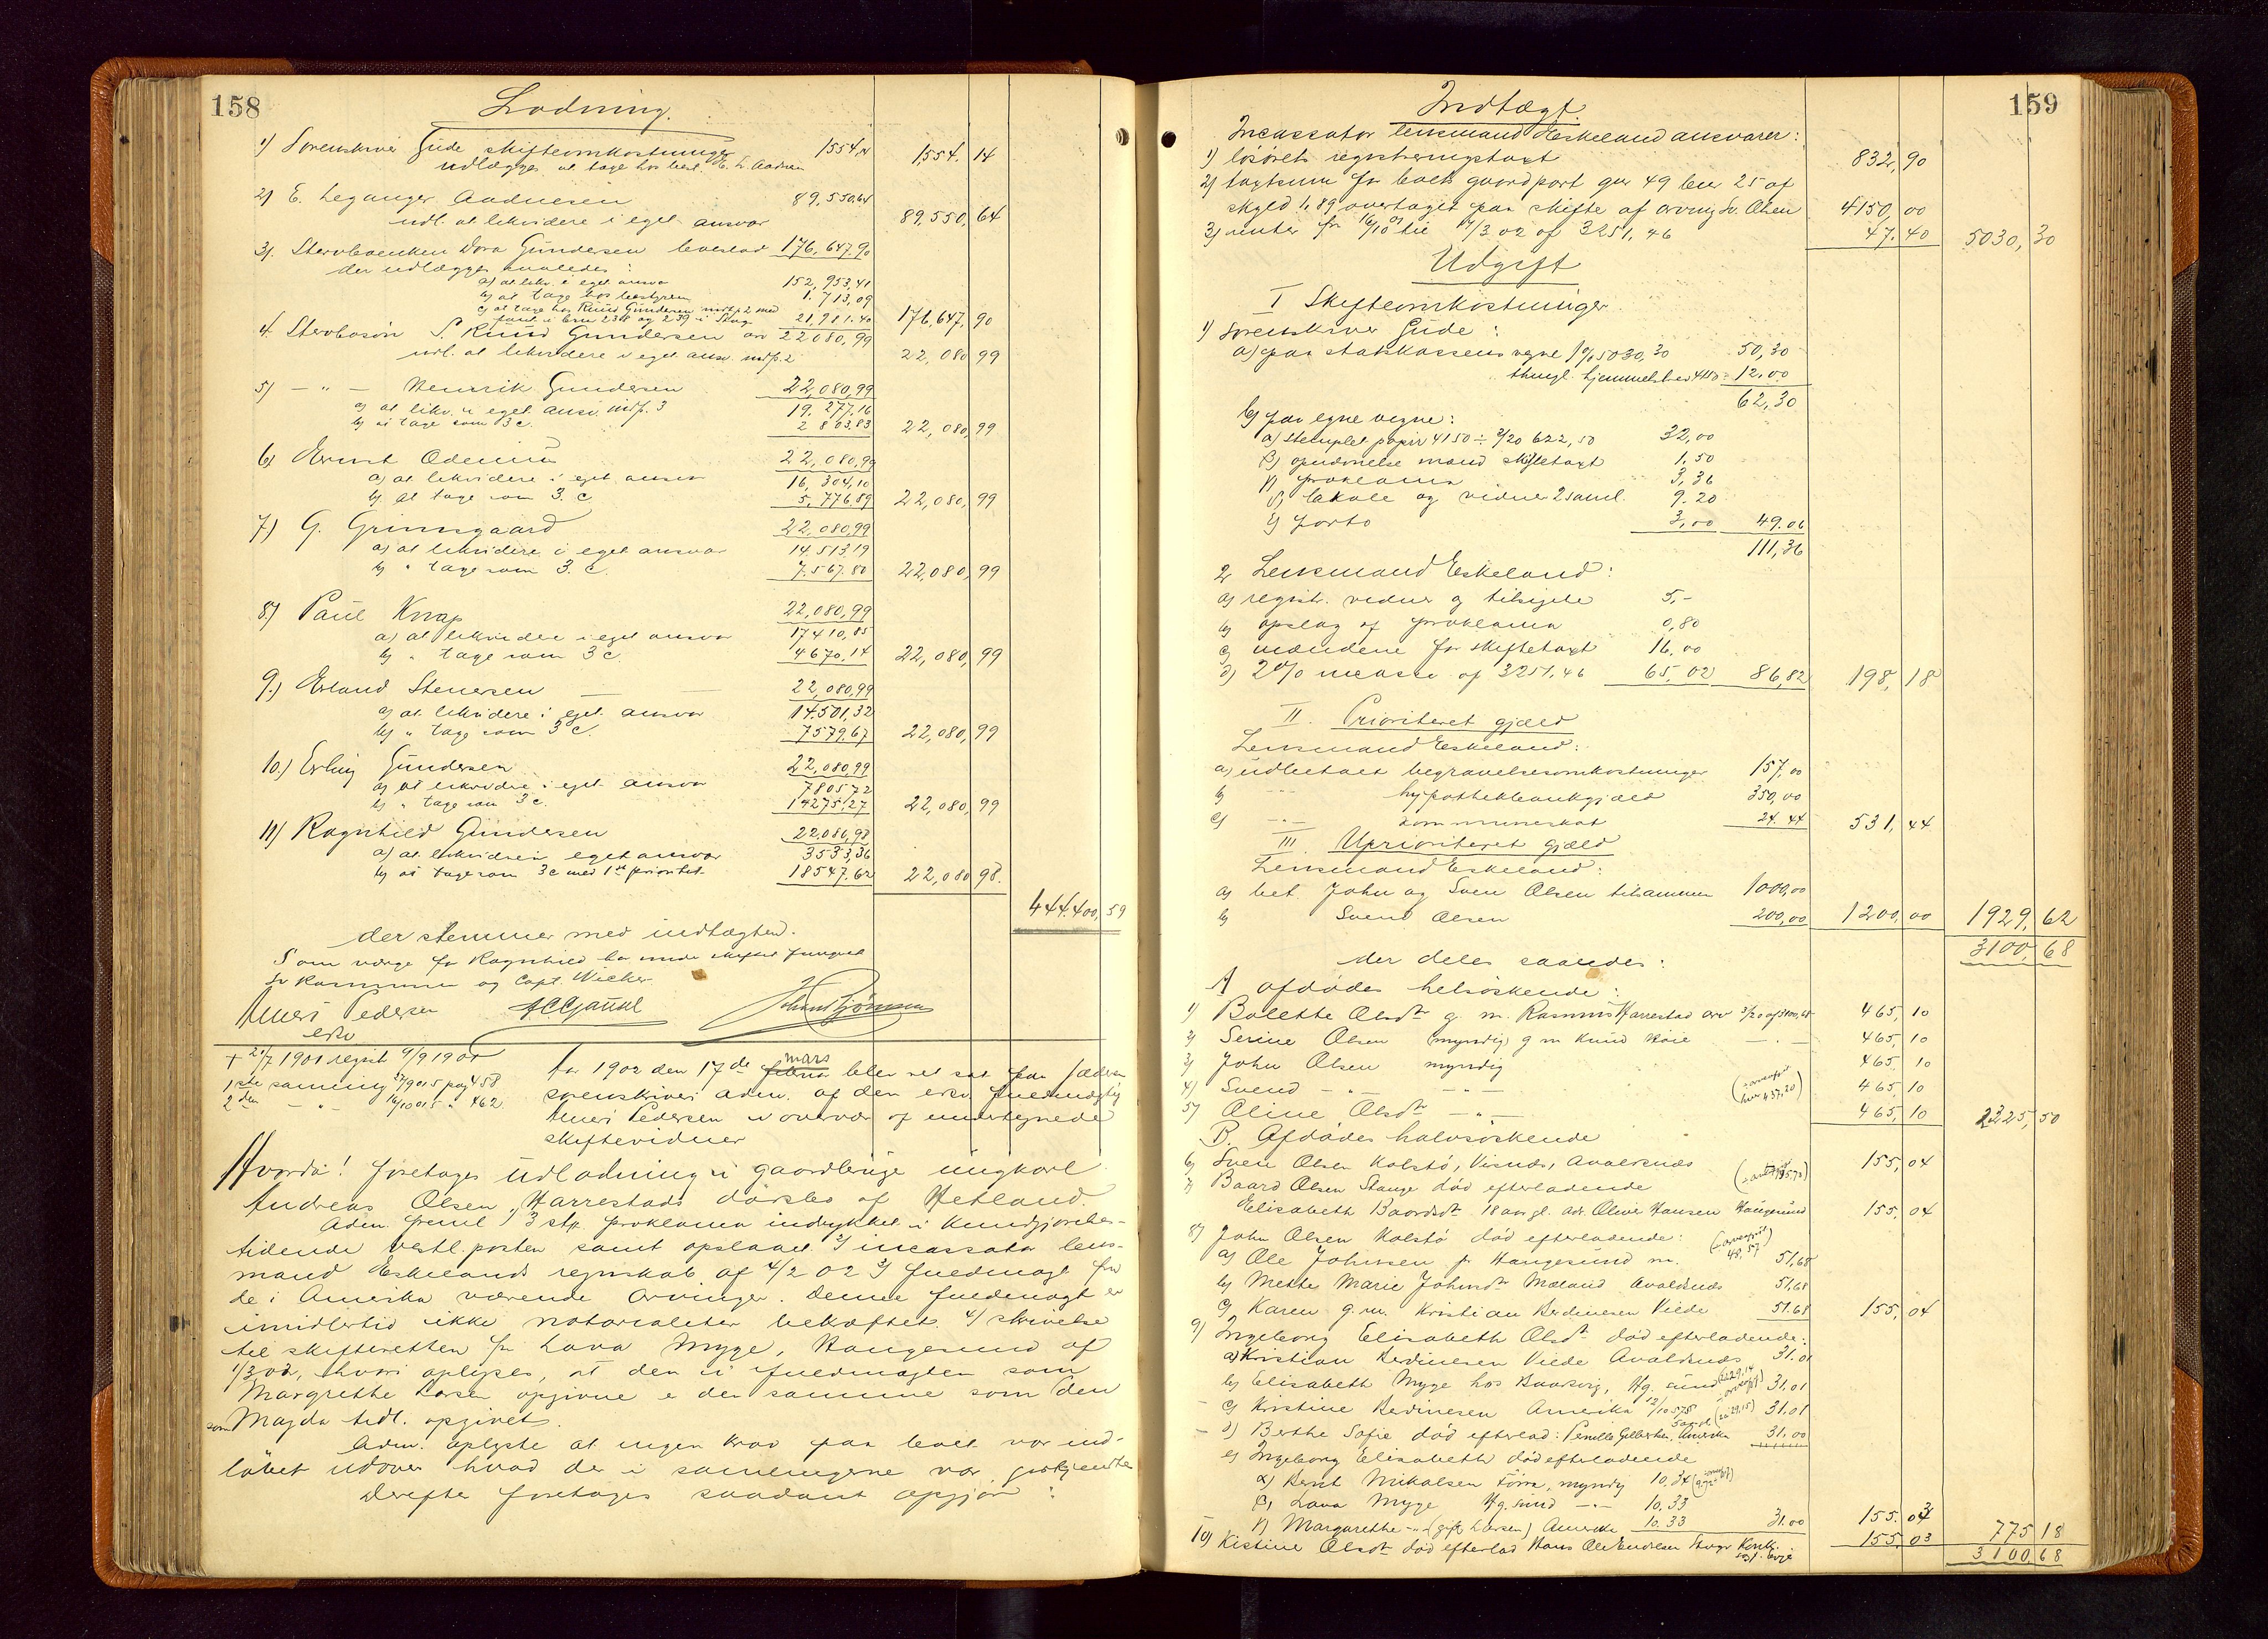 158
Lodning.
1) Sorenskriver Gude skifteomkostninger 1554,14
udlægges at tage hos best. E. L. Aadnesen 1554. 14
2) E. Leganger Aadnesen 89.550,64
udl. at likvidere i eget ansvar 89,550, 64
3). Stervboenken Dora Gundersen boeslod 176,647.90
der udlægges saaledes:
a) at likv. i eget ansvar 152,953,41
b) at tage hos bestyreren 1.713,09
c) at tage hos Knud Gundersen indf. 2 med
21,981.40 176,647, 90
4. Stervbosøn S. Knud Gundersen arv 22080,99
udl. at likvidere i eget ansv. indf. 2 22,080 99
5) — " — Henrik Gundersen 22,080,99
a) at likv. i eget ansv. indf. 3 19.277.16
b) at tage som 3 c. 2 803,83 22,080, 99
6) Ernst Odenin 22,080,99
a) at likvidere i eget ansvar 16,304,10
b) at tage som 3. c 5,776 89 22,080, 99
7) G. Grimsgaard 22,080,99
a) at likvidere i eget ansvar 14.513,19
b) " tage som 3. c. 7.567.80 22,080, 99
8) Paul Knap 22,080,99
a) at likvidere i eget ansvar 17410,85
b) " tage som 3 c. 4670.14 22,080, 99
9.) Erland Stenersen — — 22,080,99
a) at likvidere i eget ansvar 14.501,32
b) " tage som 3 c. 7579,67 22,080, 99
10.) Erling Gundersen 22,080,99
a) at likvidere i eget ansvar 7805 72
b) " tage som 3 c. 14275,27 22,080, 99
11) Ragnhild Gundersen 22,080,98
a) at likvidere i eget ansvar 3533,36
b) at tage som 3 c med 1ste prioritet 18547.62 22,080 98.
444.400, 59
der stemmer med indtægten.
Som værge for Ragnhild har under skiftet fungeret
Rasmussen og Capt. Wicker
Aners Pedersen
ersv
† 21/7 1901 regist 9/9 1901
1ste samling 27/9 01 5 pag 458
2den — " — 16/10 01 5 " 462
Aar 1902 den 17de mars blev ret sat paa Jæderen
sorenskriveri adm. af den ersv. fuldmægtig
Aners Pedersen i overvær af undertegnede
skiftevidner
Hvorda! foretoges udlodning i gaardbruger ungkarl
Andreas Olsen Harrestads dødsbo af Hetland.
Adm. freml 1) 3 stk. proklama indrykket i Kundgjørelses-
tidende vestl.posten samt opslaaet 2) incassator lens-
mand Eskelands regnskab af 4/2 02 3) fuldmagt fra
de i Amerika værende arvinger. Denne fuldmagt er
imidlertid ikke notorialiter bekræftet. 4) skrivelse
til skifteretten fra Lava Myge, Haugesund af
1/3 02, hvori oplyses, at den i fuldmagten som
Margrethe Larsen opgivne er den samme som den
som Magda tidl. opgivet.
Adm. oplyste at ingen krav paa boet var ind-
løbet udover hvad der i samlingerne var godkjendte
Derefter foretoges saadant opgjør:
159
Indtægt.
Incassator lensmand Eskeland ansvarer:
1) løsørets registreringstaxt 832, 90
2) taxtsum for boets gaardpart gnr 49 bnr 25 af
skyld 1,89 overtaget paa skifte af arving Sv. Olsen 4150, 00
3) renter fra 16/10 01 til 17/3 02 af 3251,46 47. 40 5030, 30
Udgift
I Skifteomkostninger.
1) Sorenskriver Gude:
a) paa statskassens vegne 1% 5030,30 50,30
thingl. hjemmelsbrev 4150 = 12.00
62,30
b) paa egne vegne:
a) stemplet papir 4150 ÷ 3/20 622,50 32,00
β) opnævnelse mænd skiftetaxt 1.50
γ) proklama 3,36
δ) lokale og vidner 2 saml. 9.20
ε) porto 3,00 49.06
111,36
2 Lensmand Eskeland:
a) registr. vidner og tilsigelse 5,-
b) opslag af proklama 0,80
c) mændene for skiftetaxt 16.00
d) 2% incasso af 3251,46 65.02 86,82 198, 18
II. Prioriteret gjæld
Lensmand Eskeland:
a) udbetalt begravelsesomkostninger 157,00
b) — " — hypothekbankgjæld 350,00
c) — " — kommuneskat 24.44 531, 44
III. Uprioriteret gjæld
Lensmand Eskeland:
a) bet. John og Sven Olsen tilsammen 1000,00
b) Svend Olsen 200,00 1200 00 1929, 62
3100, 68
der deles saaledes:
A afdødes helsøskende:
1) Bolette Olsdt g. m. Rasmus Harrestad arv 3/20 af 3100,68 465, 10
2) Serine Olsen (myndig) g m Knud Høie — " — 465, 10
3) John Olsen myndig 465, 10
4) Svend — " — — " — 465, 10
5) Oline Olsdt — " — 465, 10 2325, 50
B. Afdødes halvsøskende
6) Sven Olsen Kolstø, Visnes, Avaldsnes 155, 04
7) Baard Olsen Stange død efterladende
Elisabeth Baardsdt 18 aar gl. adr. Oliver Hansen Haugesund 155, 04
8) John Olsen Kolstø død efterladende:
a) Ole Johnsen fr Haugesund m. 51,68
b) Mette Marie Johnsdt Mæland Avaldsnæs 51,68
c) Karen g.m. Kristian Berdinesen Viede 51.68 155, 04
9) Ingeborg Elisabeth Olsdt død efterladende:
a) Kristian Berdinesen Viede Avaldsnæs 31.01
b) Elisabeth Myge hos Baarsvig, Hg. sund 31,01
c) Kristine Berdinesen Amerika 31.01
d) Berthe Sofie død efterlad: Pernille Gilbertsen, Amerika 31.00
e) Ingeborg Elisabeth død efterladende
α) Bernt Mikalsen Førre, myndig 10.34
β) Lava Myge Hg.sund — " — 10.33
γ) Margarethe — " — (gift Larsen) Amerika 10.33 31.00 155. 03
10) Kistine Olsdt død efterlad Hans Ole Endresen 155. 03 775 18
3100.68